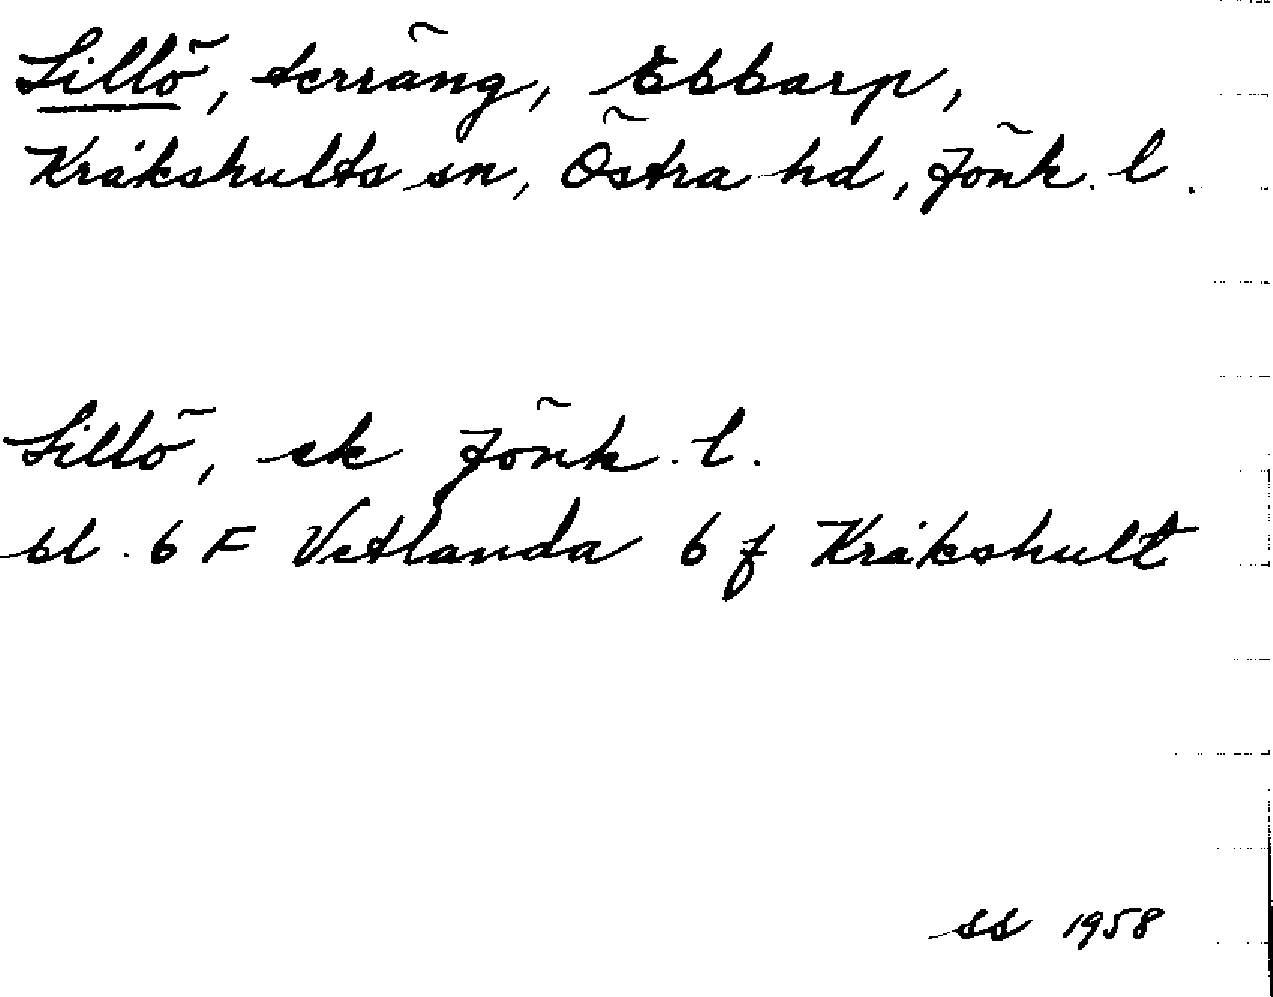 Lillö, terräng, Ebbarp,
Kråkshults sn, Östra hd, Jönk. l.
Lillö, ek Jönk. l.
bl. 6 F Vetlanda 6 f Kråkshult
ss 1958